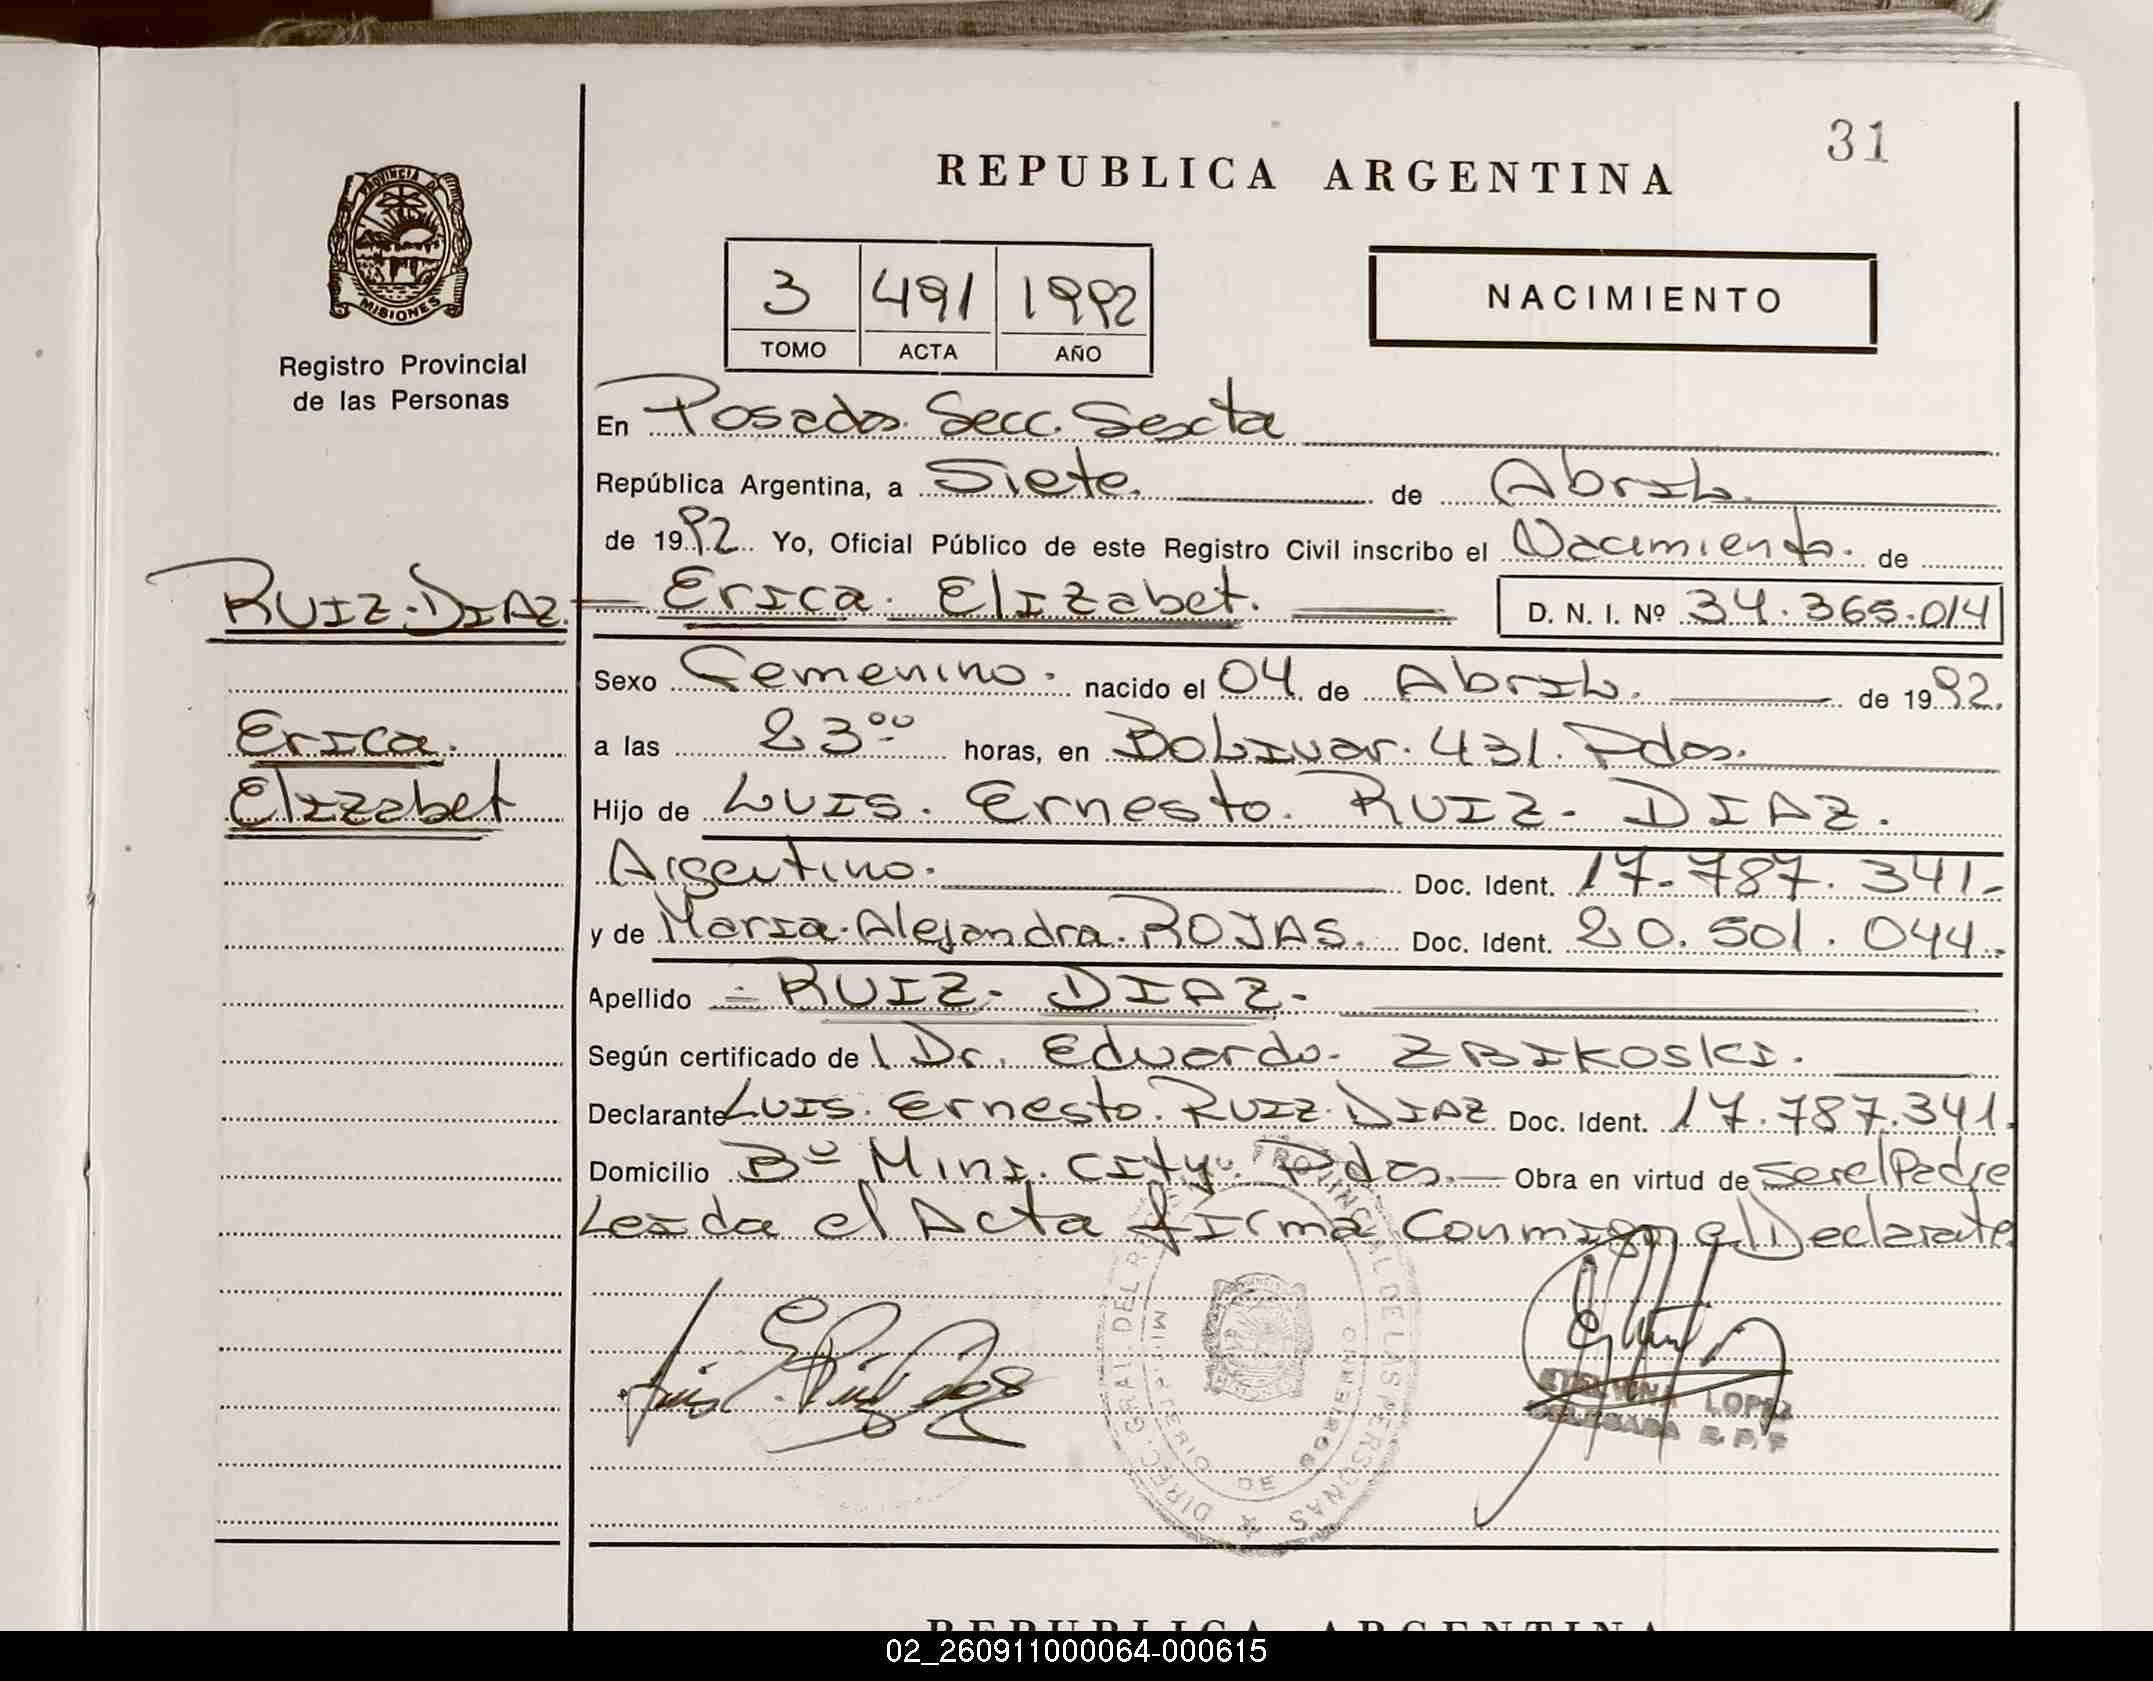 31
REPUBLICA ARGENTINA
PROVINCIA DE
MISIONES
Registro Provincial
de las Personas
3 491 1992
TOMO ACTA AÑO
NACIMIENTO
En Posadas. Secc. Sexta
República Argentina, a Siete. de Abril.
de 1992 Yo, Oficial Público de este Registro Civil inscribo el Nacimiento. de
RUIZ. DIAZ. Erica. Elizabet. D. N. I. Nº 34.365.014
Sexo Femenino. nacido el 04 de Abril. de 1992.
Erica.
a las 23⁰⁰ horas, en Bolivar. 431. Pdas.
Elizabet
Hijo de Luis. Ernesto. RUIZ - DIAZ.
Argentino. Doc. Ident. 17.787.341.-
y de Maria. Alejandra. ROJAS. Doc. Ident. 20.501.044.-
Apellido = RUIZ - DIAZ -
Según certificado de l Dr. Eduardo. ZBIKOSKI.
Declarante Luis. Ernesto. RUIZ. DIAZ Doc. Ident. 17.787.341.
Domicilio Bº Mini. City. Pdas.- Obra en virtud de ser el Padre
Leida el Acta firma conmigo el Declarate
DIREC. GRAL. DEL REG. PROVINCIAL DE LAS PERSONAS
MINISTERIO DE GOBIERNO
Luis E. Ruiz Diaz
ETELVINA LOPEZ
DELEGADA R. P. P
REPUBLICA ARGENTINA
02_260911000064-000615